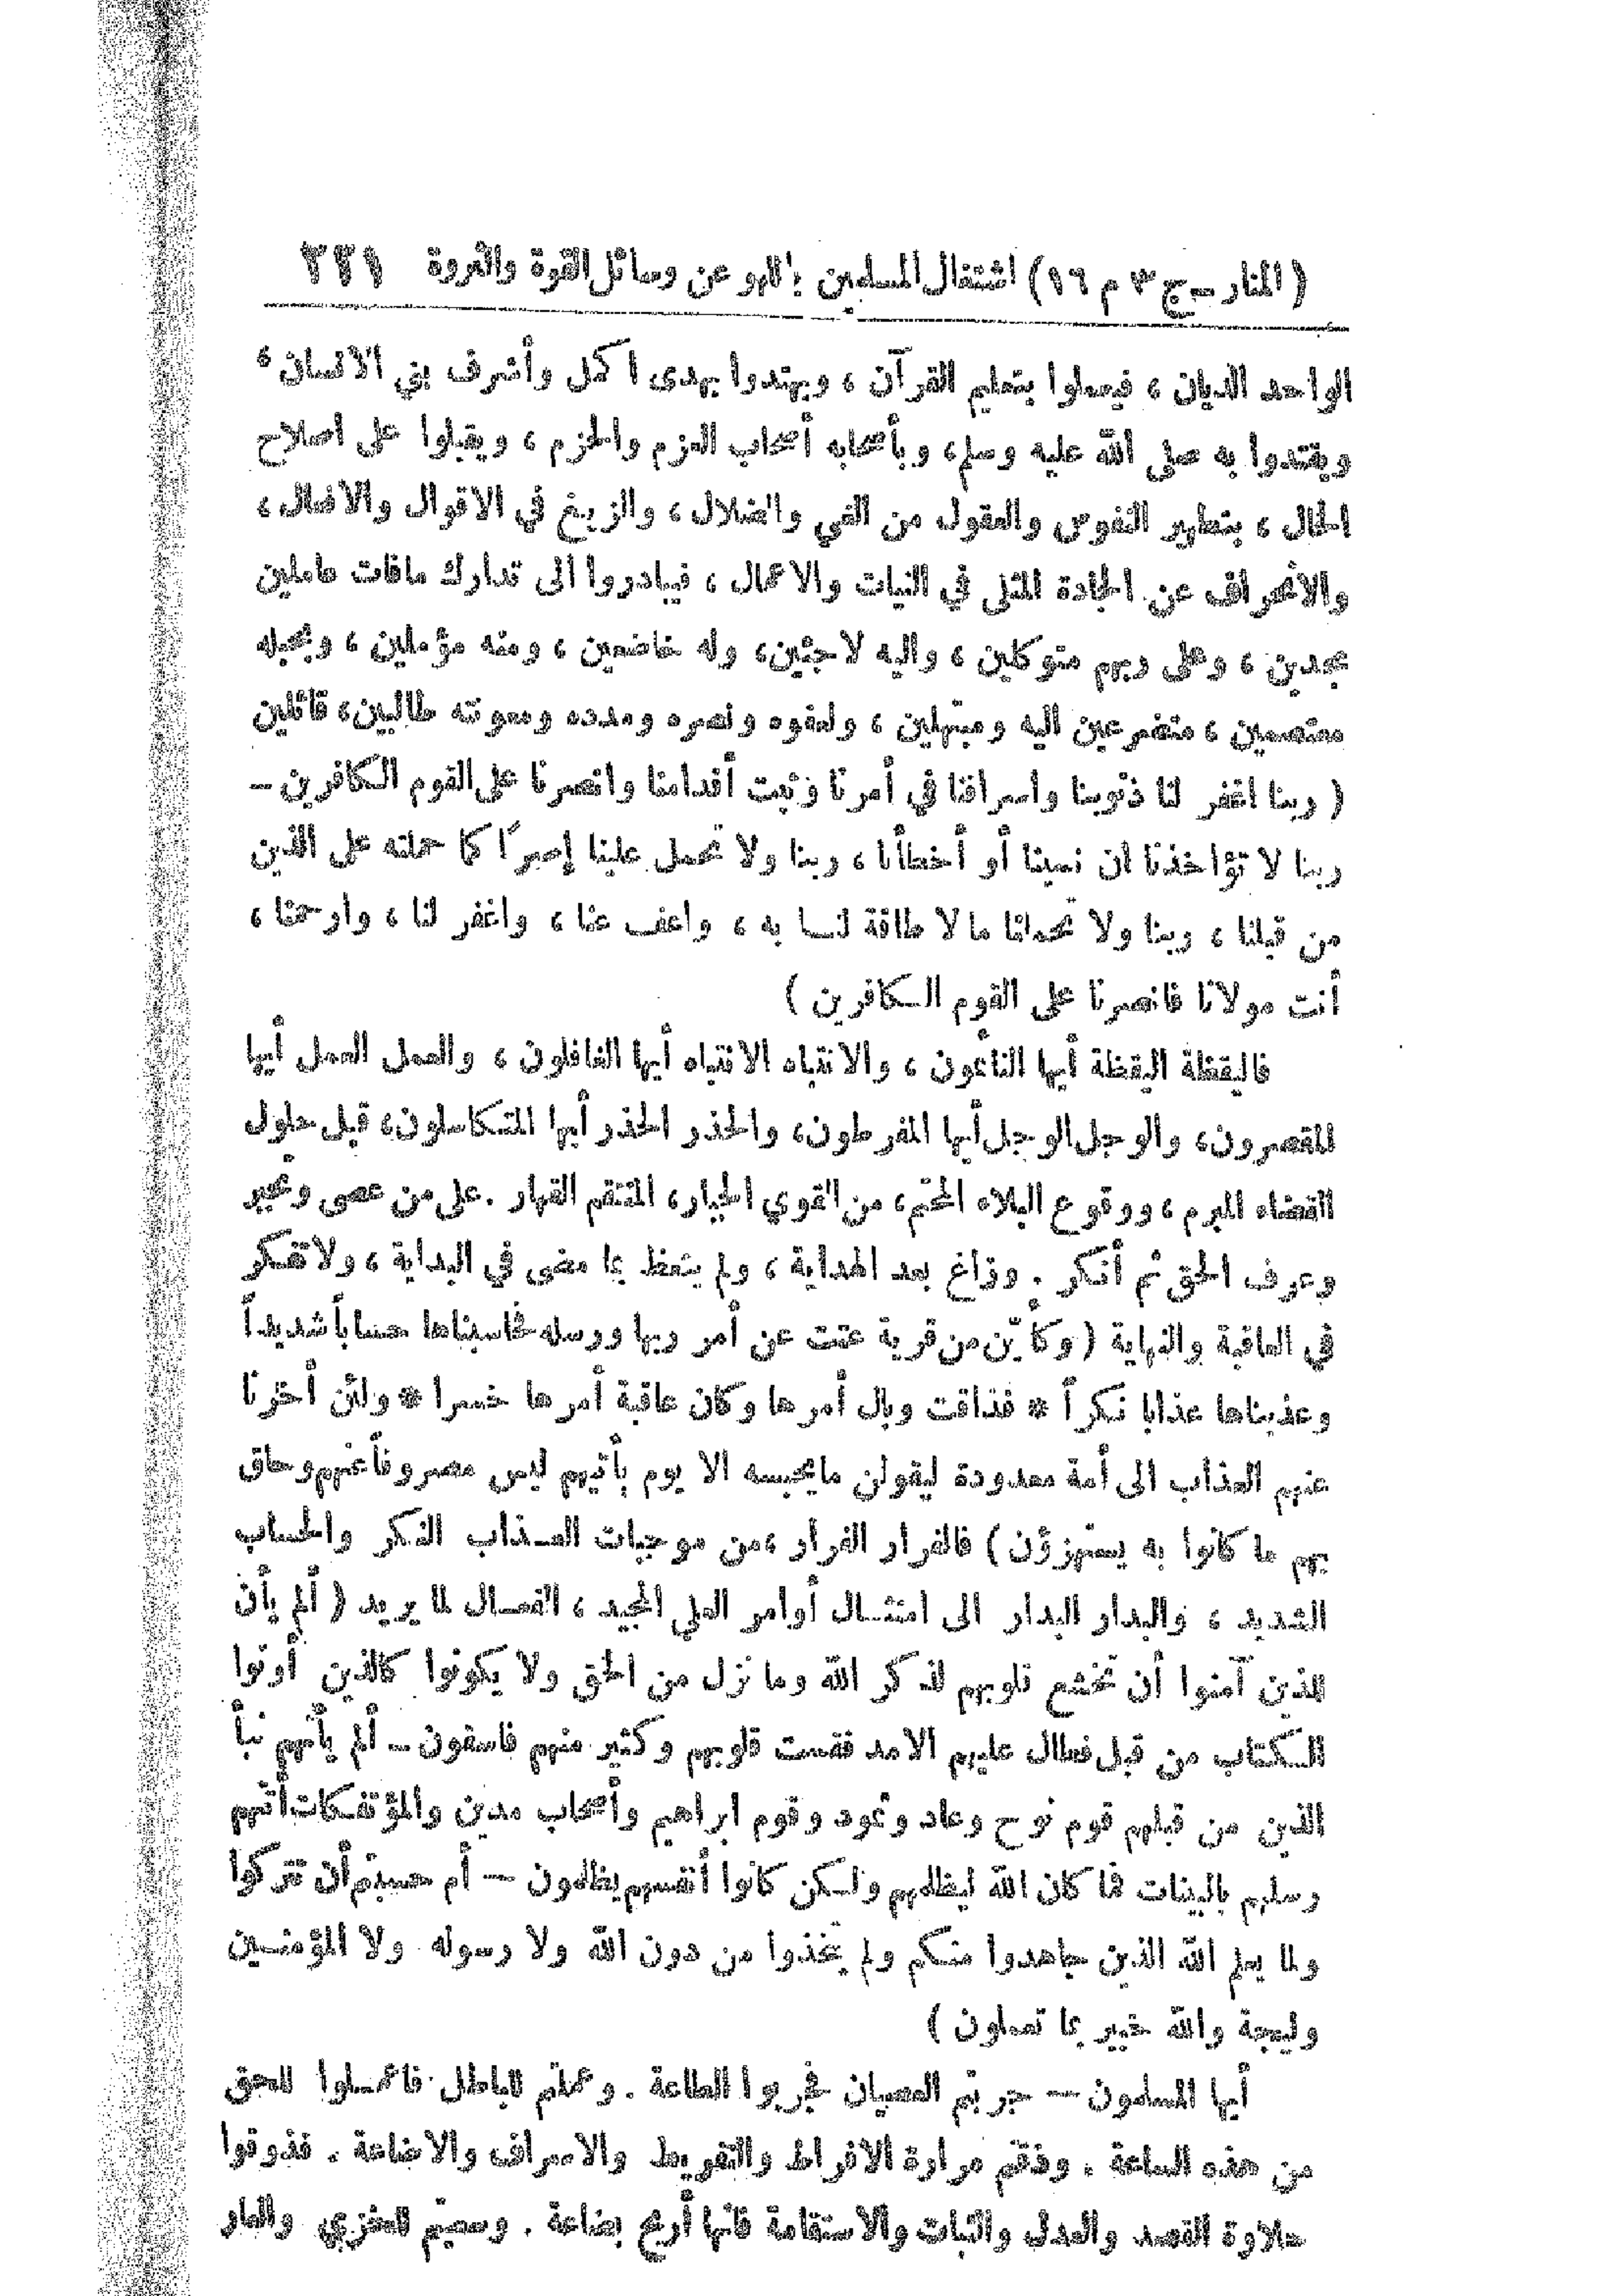 (المنار ـ ج ٣ م ١٦) اشتغال المسلمين باللهو عن وسائل القوة والثروة ٢٢١
الواحد الديان ، فيعملوا بتعليم القرآن ، ويهتدوا بهدى اكمل وأشرف بني الانسان ،
ويقتدوا به صلى الله عليه وسلم، وبأصحابه أصحاب العزم والحزم ، ويقبلوا على اصلاح
الحال ، بتطهير النفوس والعقول من الغي والضلال ، والزيغ في الاقوال والافعال ،
والانحراف عن الجادة المثلى في النيات والاعمال ، فيبادروا الى تدارك مافات عاملين
مجدين ، وعلى ربهم متوكلين ، واليه لاجئين، وله خاضعين ، ومنه مؤملين ، وبحبله
معتصمين ، متضرعين اليه ومبتهلين ، ولعفوه ونصره ومدده ومعونته طالبين، قائلين
( ربنا اغفر لنا ذنوبنا واسرافنا في أمرنا وثبت أقدامنا وانصرنا على القوم الكافرين ـ
ربنا لا تؤاخذنا ان نسينا أو أخطأنا ، ربنا ولا تحمل علينا إصراً كما حملته على الذين
من قبلنا ، ربنا ولا تحملنا ما لا طاقة لنا به ، واعف عنا ، واغفر لنا ، وارحمنا ،
أنت مولانا فانصرنا على القوم الكافرين )
فاليقظة اليقظة أيها النائمون ، والانتباه الانتباه أيها الغافلون ، والعمل العمل أيها
المقصرون، والوجل الوجل أيها المفرطون، والحذر الحذر أيها المتكاسلون، قبل حلول
القضاء المبرم ، ووقوع البلاء المحتم، من القوي الجبار، المنتقم القهار . على من عصى وتجبر
وعرف الحق ثم أنكر . وزاغ بعد الهداية ، ولم يتعظ بما مضى في البداية ، ولا تفكر
في العاقبة والنهاية ( وكأيّن من قرية عتت عن أمر ربها ورسله فحاسبناها حساباً شديداً
وعذبناها عذابا نكراً * فذاقت وبال أمرها وكان عاقبة أمرها خسرا * ولئن أخرنا
عنهم العذاب الى أمة معدودة ليقولن مايحبسه الا يوم يأتيهم ليس مصروفاً عنهم وحاق
بهم ما كانوا به يستهزؤن ) فالفرار الفرار ، من موجبات العذاب النكر والحساب
الشديد ، والبدار البدار الى امتثال أوامر العلي المجيد ، الفعال لما يريد ( ألم يأن
للذين آمنوا أن تخشع قلوبهم لذكر الله وما نزل من الحق ولا يكونوا كالذين أوتوا
الكتاب من قبل فطال عليهم الامد فقست قلوبهم وكثير منهم فاسقون ـ ألم يأتهم نبأ
الذين من قبلهم قوم نوح وعاد وثمود وقوم ابراهيم وأصحاب مدين والمؤتفكات أتتهم
رسلهم بالبينات فما كان الله ليظلمهم ولكن كانوا أنفسهم يظلمون — أم حسبتم أن تتركوا
ولما يعلم الله الذين جاهدوا منكم ولم يتخذوا من دون الله ولا رسوله ولا المؤمنين
وليجة والله خبير بما تعملون )
أيها المسلمون — جربتم العصيان فجربوا الطاعة . وعملتم للباطل فاعملوا للحق
من هذه الساعة . وذقتم مرارة الافراط والتفريط والاسراف والاضاعة . فذوقوا
حلاوة القصد والعدل والثبات والاستقامة فانها أربح بضاعة . وسعيتم للخزي والعار